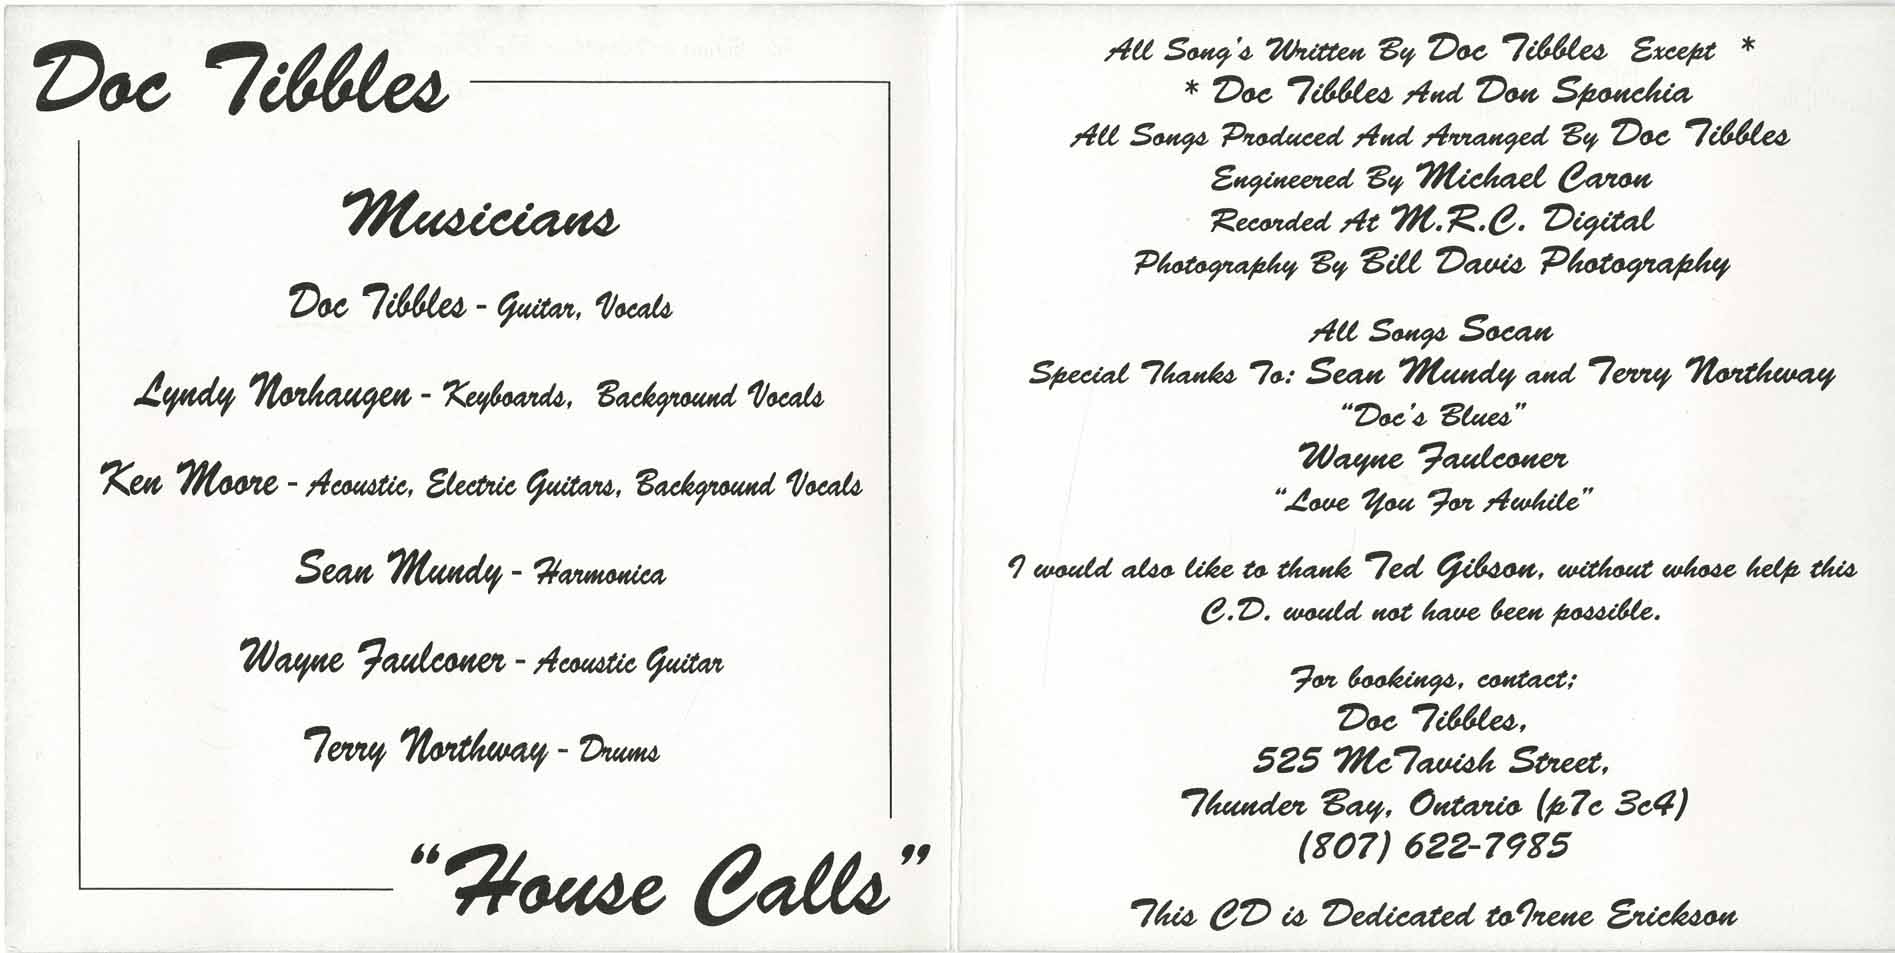 Doc Tibbles
Musicians
Doc Tibbles - Guitar, Vocals
Lyndy Norhaugen - Keyboards, Background Vocals
Ken Moore - Acoustic, Electric Guitars, Background Vocals
Sean Mundy - Harmonica
Wayne Faulconer - Acoustic Guitar
Terry Northway - Drums
"House Calls"
All Song's Written By Doc Tibbles Except *
* Doc Tibbles And Don Sponchia
All Songs Produced And Arranged By Doc Tibbles
Engineered By Michael Caron
Recorded At M.R.C. Digital
Photography By Bill Davis Photography
All Songs Socan
Special Thanks To: Sean Mundy and Terry Northway
"Doc's Blues"
Wayne Faulconer
"Love You For Awhile"
I would also like to thank Ted Gibson, without whose help this
C.D. would not have been possible.
For bookings, contact;
Doc Tibbles,
525 McTavish Street,
Thunder Bay, Ontario (p7c 3c4)
(807) 622-7985
This CD is Dedicated to Irene Erickson